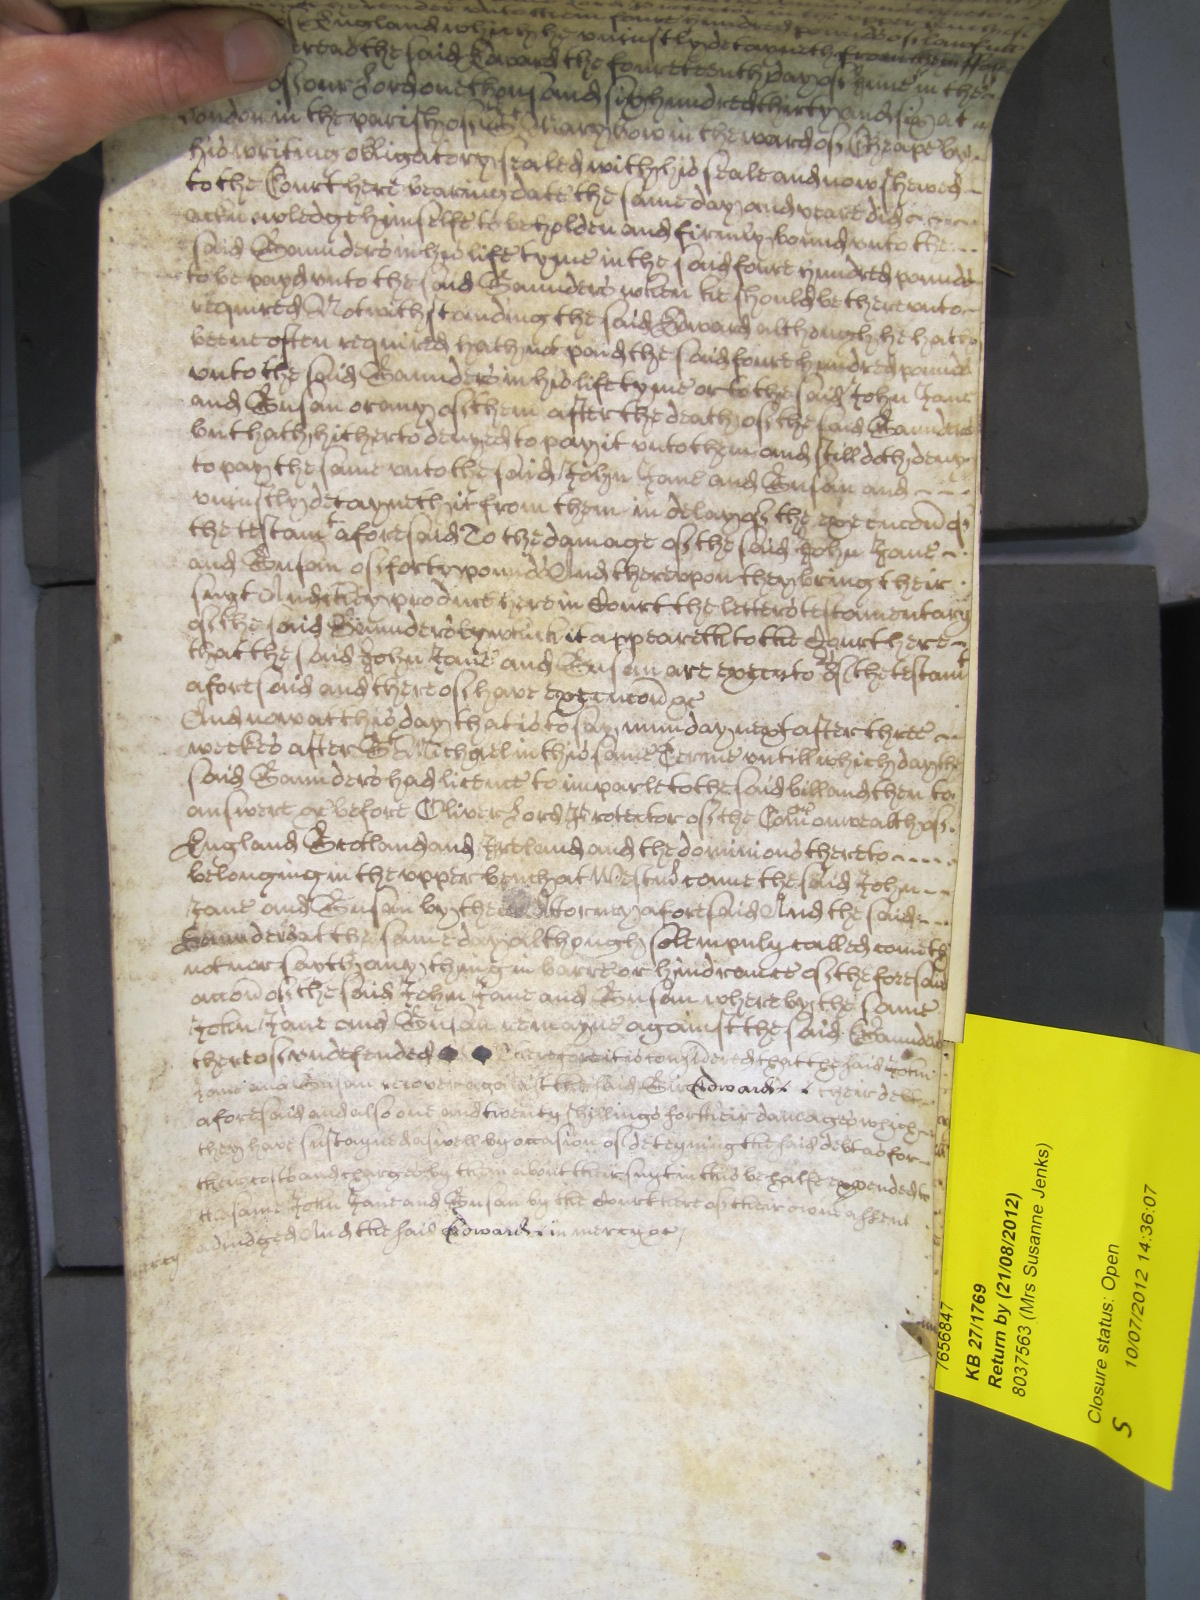 of England which he uniustly detayneth from them
whereas the said Edward the fourteenth day of June in the
of our Lord one thousand six hundred thirty and six at
London in the parish of St Mary bow in the ward of Cheape by
his writing obligatory sealed with his seale and now shewed
to the Court here bearing date the same day and yeare did
acknowledge himselfe to be holden and firmely bound unto the
said Saunders in his life tyme in the said foure hundred pounds
to be payd unto the said Saunders when he should be thereunto
required Notwithstanding the said Edward although he hath
beene often required hath not paid the said foure hundred pounds
unto the said Saunders in his life tyme or to the said John Jane
and Susan or any of them after the death of the said Saunders
but hath hitherto denyed to pay it unto them and still doth deny
to pay the same unto the said John Jane and Susan and
uniustly detayneth it from them in delay of the execucon of
the testamt aforesaid To the damage of the said John Jane
and Susan of forty pounds And thereupon they bring their
suyt And they produce here in Court the letters testamentary
of the said Saunders by which it appeareth to the Court here
that the said John Jane and Susan are executors of the testamt
aforesaid and thereof have execucon &c
And now at this day that is to say munday next after three
weekes after St Michael in this same Terme untill which day the
said Saunders had licence to imparle to the said bill and then to
answere &c before Oliver Lord Protector of the Comonwealth of
England Scotland and Ireland and the dominions thereto
belonging in the upper bench at Westmr came the said John
Jane and Susan by their Attorney aforesaid And the said
Saunders at the same day although solempnly called cometh
not nor sayth any thing in barre or hindrance of the foresaid
accon of the said John Jane and Susan whereby the same
John Jane and Susan remayne against the said Saunders
thereof undefended Therefore it is considered that the said John
Jane and Susan recover against the said Edward their debt
aforesaid and also one and twenty shillings for their damages which
they have sustayned aswell by occasion of deteyning the said debt as for
their costs and charges by them about their suyt in this behalfe expended to
the same John Jane and Susan by the Court here of their owne assent
adiudged And the said Edward in mercy &c
mercy
7656847
KB 27/1769
Return by (21/08/2012)
8037563 (Mrs Susanne Jenks)
Closure status: Open
10/07/2012 14:36:07
S